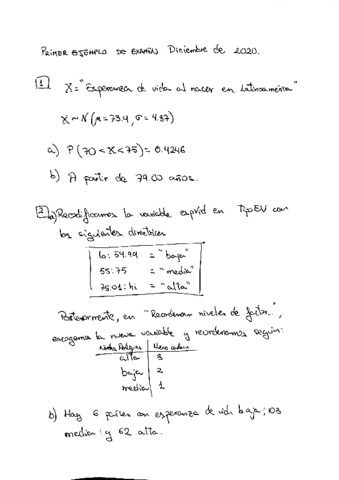 PRIMER EJEMPLO DE EXAMEN Diciembre de 2020.
1 X = "Esperanza de vida al nacer en Latinoamérica"
X ~ N(μ=73.4, σ=4.87)
a) P(70<X<75) = 0.4246
b) A partir de 79.00 años.
2 a) Recodificamos la variable espvid en TipoEV con
las siguientes directrices
lo:54.99 = "baja"
55:75 = "media"
75.01:hi = "alta"
Posteriormente, en "Reordenar niveles de factor...",
escogemos la nueva variable y reordenamos según:
Niveles Antiguos Nuevo orden
alta 3
baja 2
media 1
b) Hay 6 países con esperanza de vida baja; 103
media; y 62 alta.